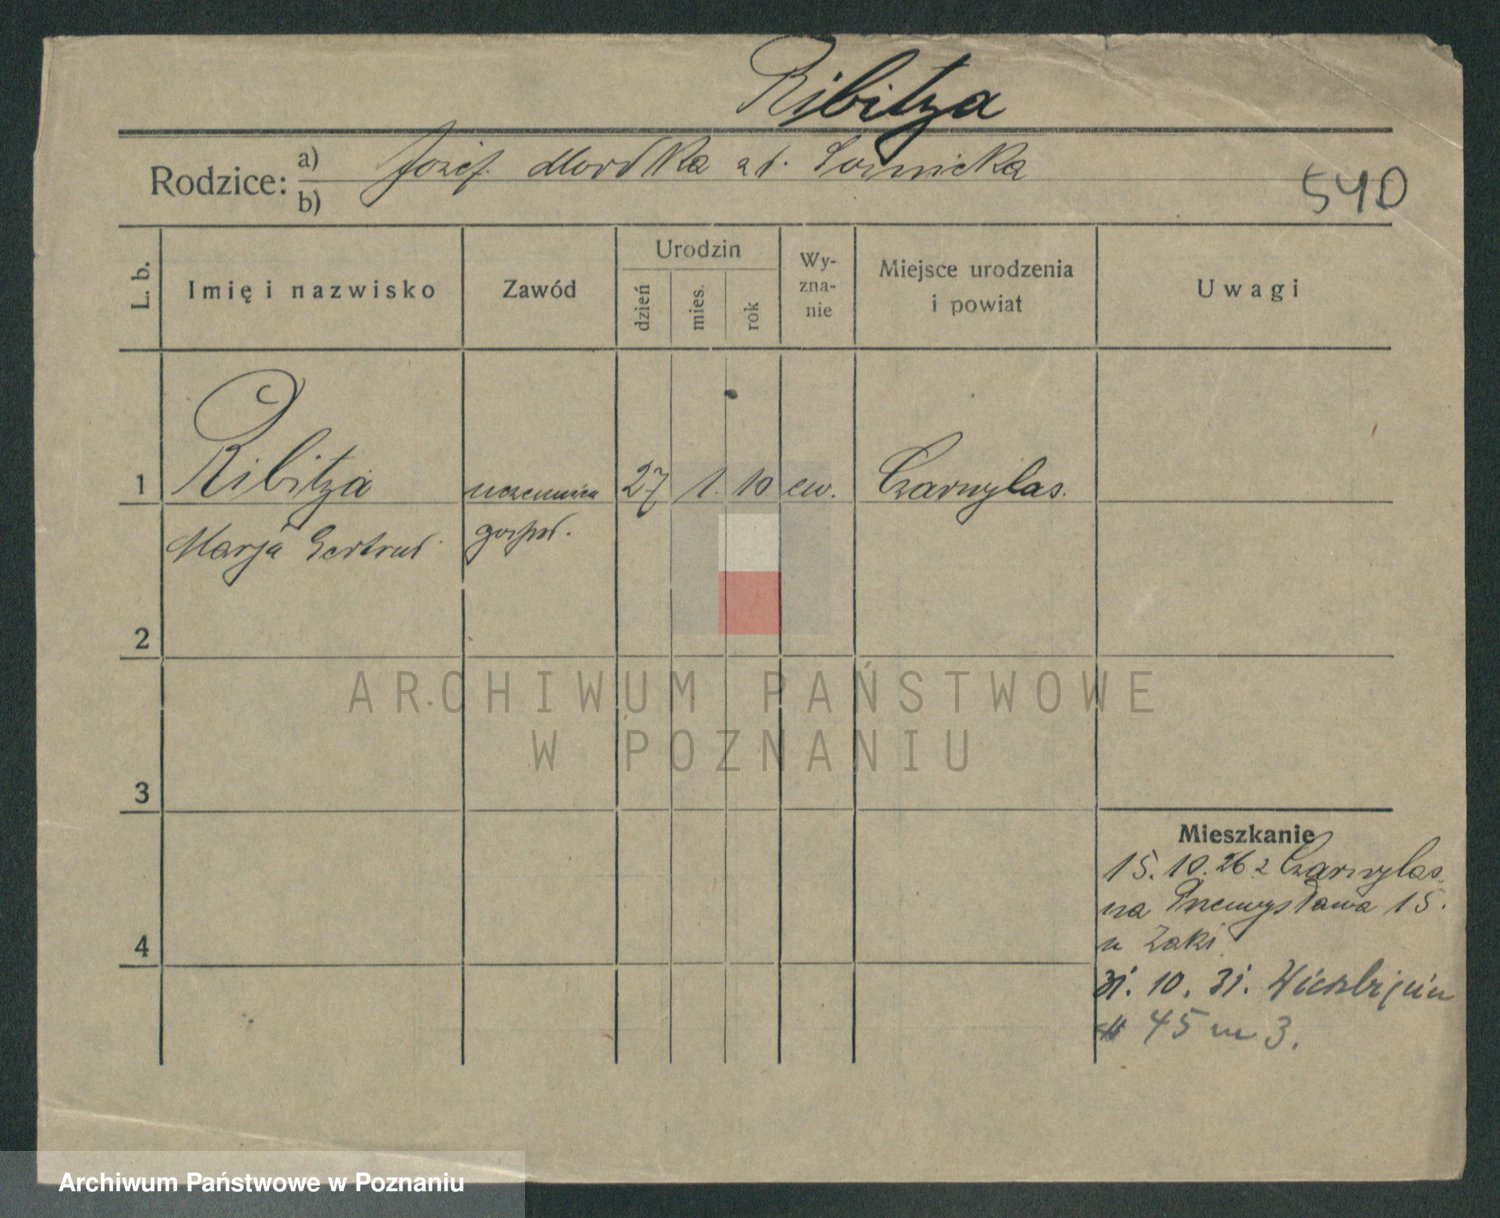 Ribitza
Rodzice: a) Józef. Mordka zd. Sosnicka
b)
540
L. b.
Imię i nazwisko
Zawód
Urodzin
dzień
mies.
rok
Wy-
zna-
nie
Miejsce urodzenia
i powiat
Uwagi
1 Ribitza uczennica 27 1. 10 ew. Czarnylas.
Marja Gertrud gospod.
2
3
4
ARCHIWUM PAŃSTWOWE
W POZNANIU
Mieszkanie
15. 10. 26 z Czarnylas.
na Przemysława 15.
u Zaki
31. 10. 31.
45 m 3.
Archiwum Państwowe w Poznaniu